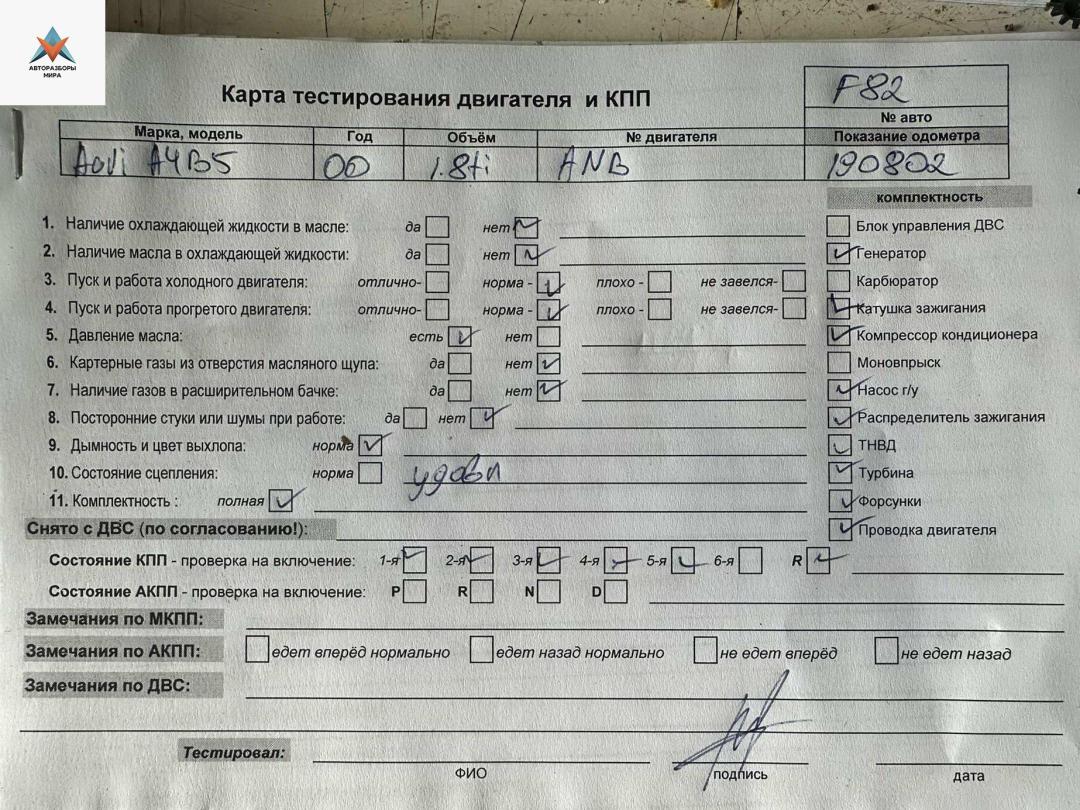 АВТОРАЗБОРЫ
МИРА
Карта тестирования двигателя и КПП
F82
№ авто
Марка, модель Год Объём № двигателя Показание одометра
Audi A4B5 00 1.8ti ANB 190802
комплектность
1. Наличие охлаждающей жидкости в масле: да нет Блок управления ДВС
2. Наличие масла в охлаждающей жидкости: да нет Генератор
3. Пуск и работа холодного двигателя: отлично- норма - плохо - не завелся- Карбюратор
4. Пуск и работа прогретого двигателя: отлично- норма - плохо - не завелся- Катушка зажигания
5. Давление масла: есть нет Компрессор кондиционера
6. Картерные газы из отверстия масляного щупа: да нет Моновпрыск
7. Наличие газов в расширительном бачке: да нет Насос г/у
8. Посторонние стуки или шумы при работе: да нет Распределитель зажигания
9. Дымность и цвет выхлопа: норма ТНВД
10. Состояние сцепления: норма удовл Турбина
11. Комплектность : полная Форсунки
Снято с ДВС (по согласованию!): Проводка двигателя
Состояние КПП - проверка на включение: 1-я 2-я 3-я 4-я 5-я 6-я R
Состояние АКПП - проверка на включение: P R N D
Замечания по МКПП:
Замечания по АКПП: едет вперёд нормально едет назад нормально не едет вперёд не едет назад
Замечания по ДВС:
Тестировал:
ФИО подпись дата